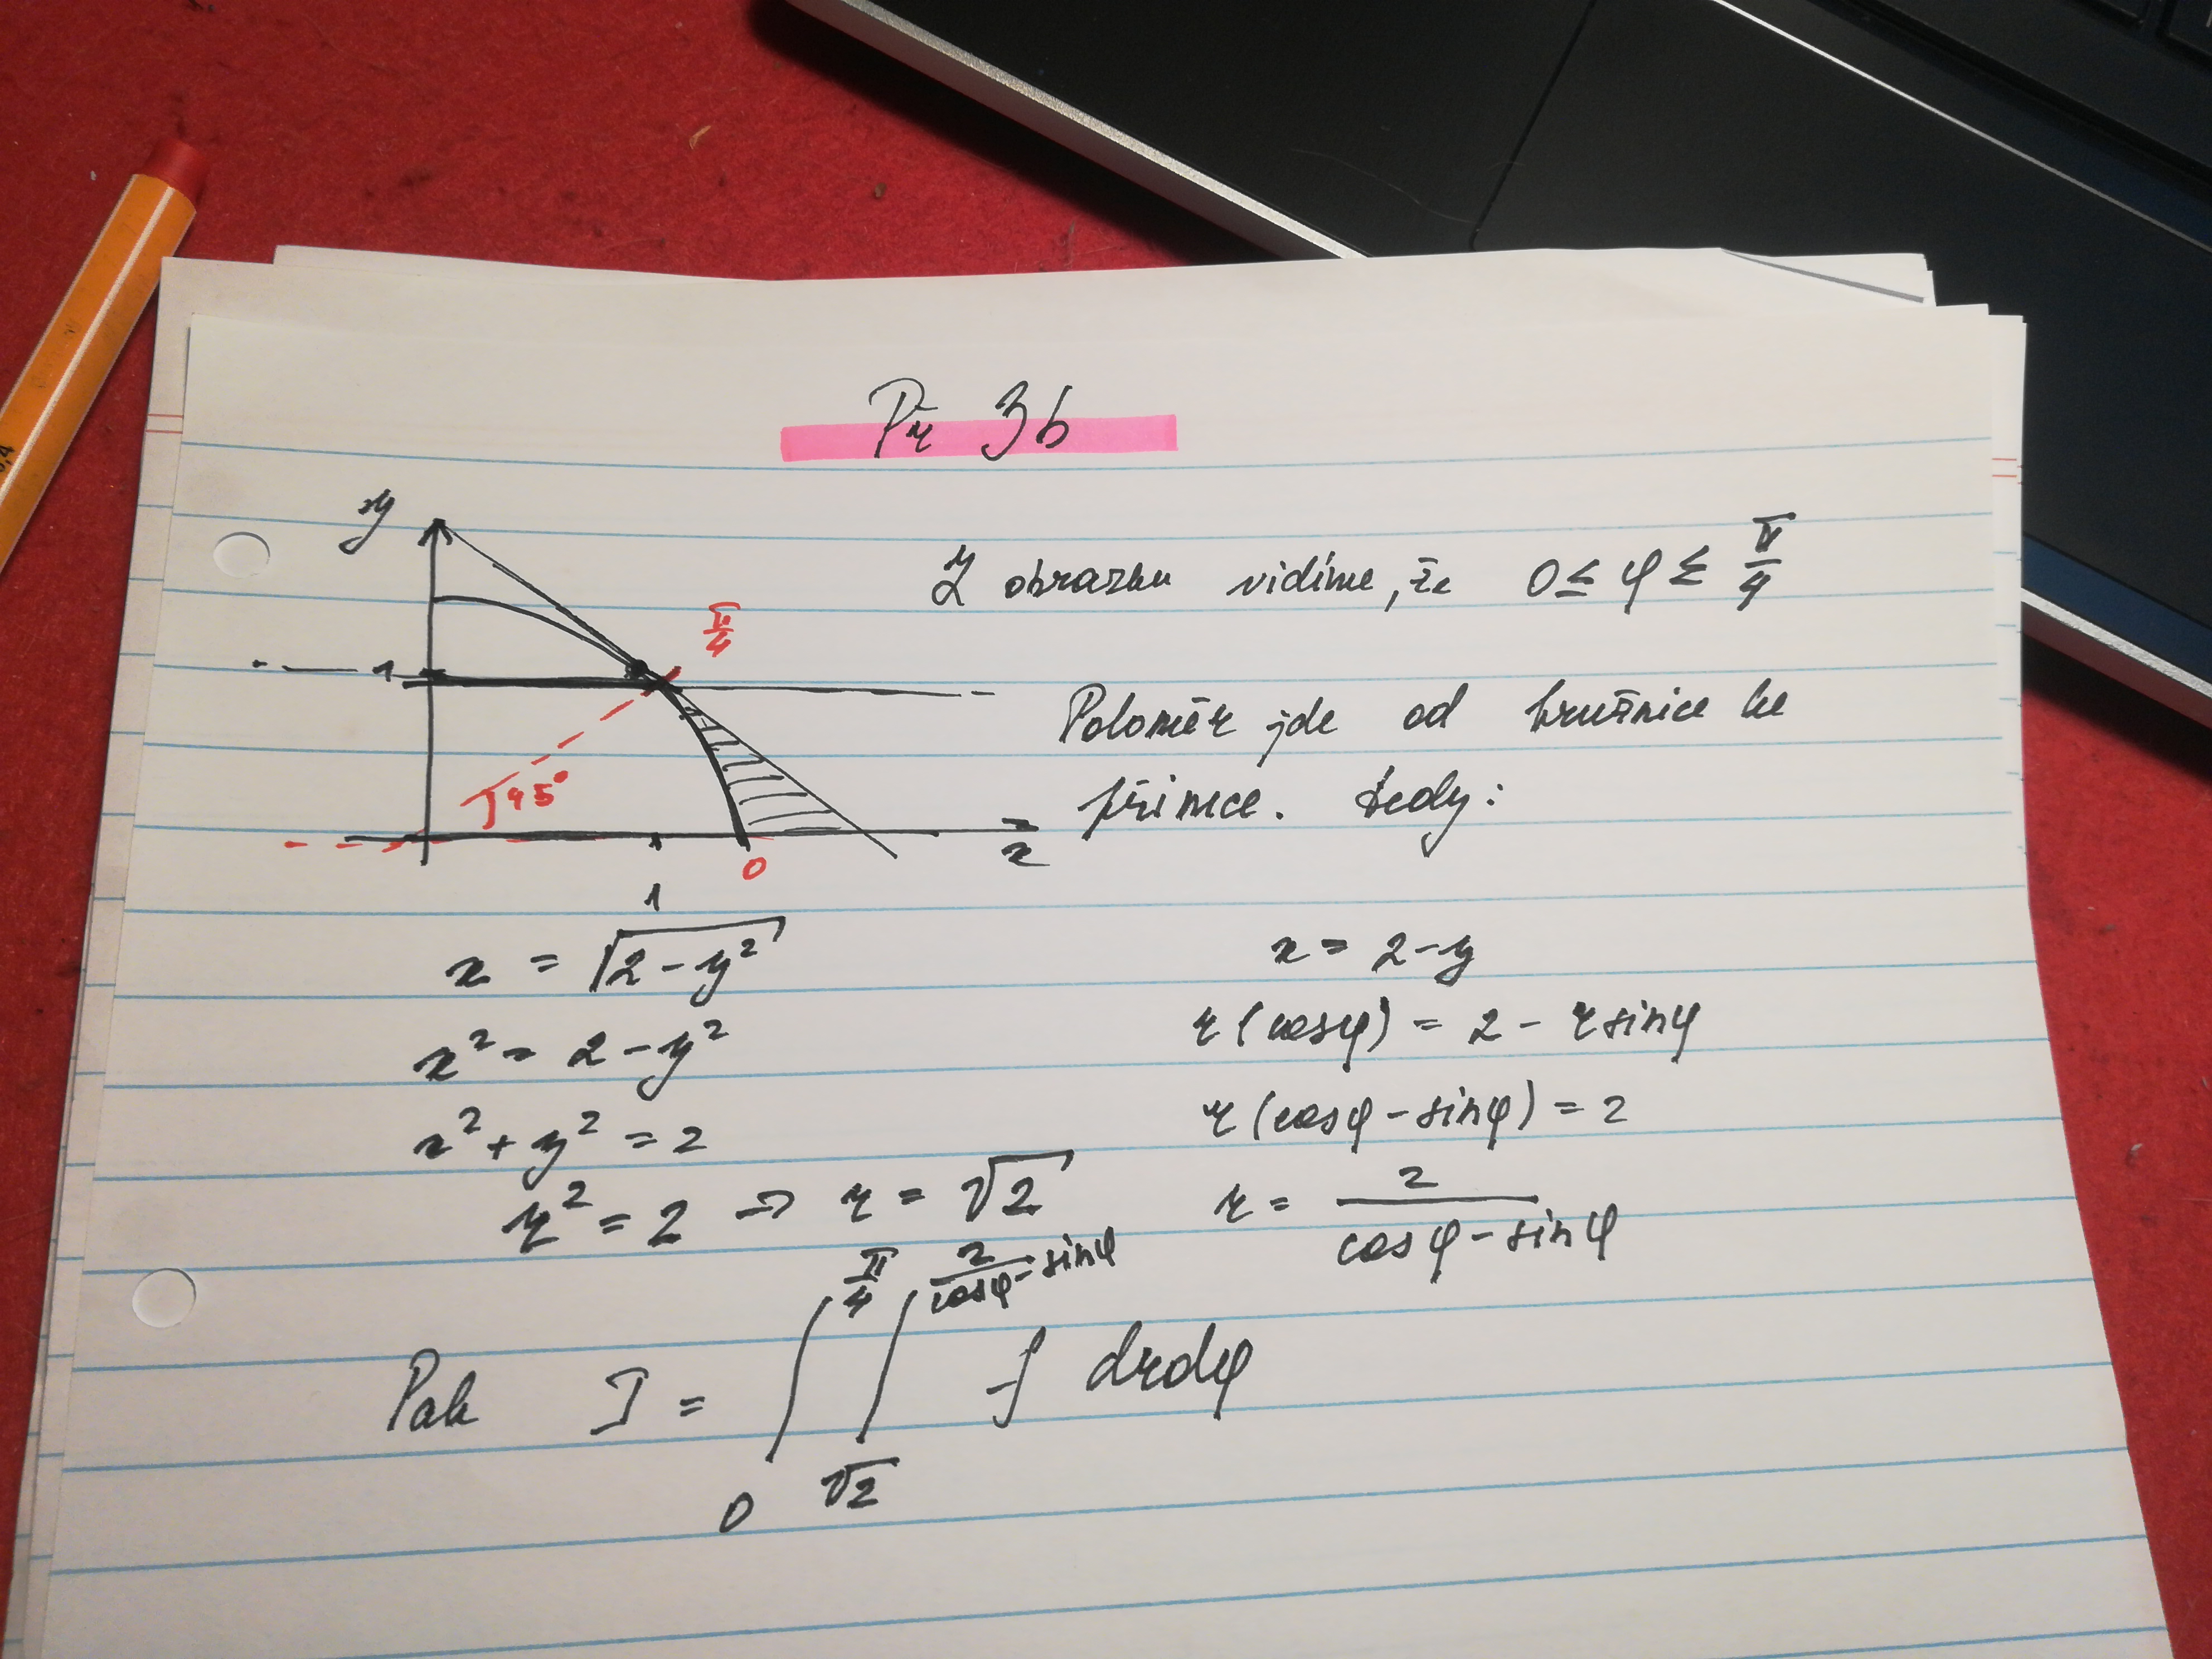 Př 3b
y
π/4
Z obrazku vidíme, že 0 ≤ φ ≤ π/4
1
Poloměr jde od kružnice ke
přímce. tedy:
45°
x
0
1
x = √(2-y²)
x² = 2-y²
x² + y² = 2
r² = 2 => r = √2
x = 2-y
r(cosφ) = 2 - r sinφ
r(cosφ - sinφ) = 2
r = 2/(cosφ - sinφ)
Pak I = ∫_0^{π/4} ∫_{√2}^{2/(cosφ - sinφ)} f drdφ